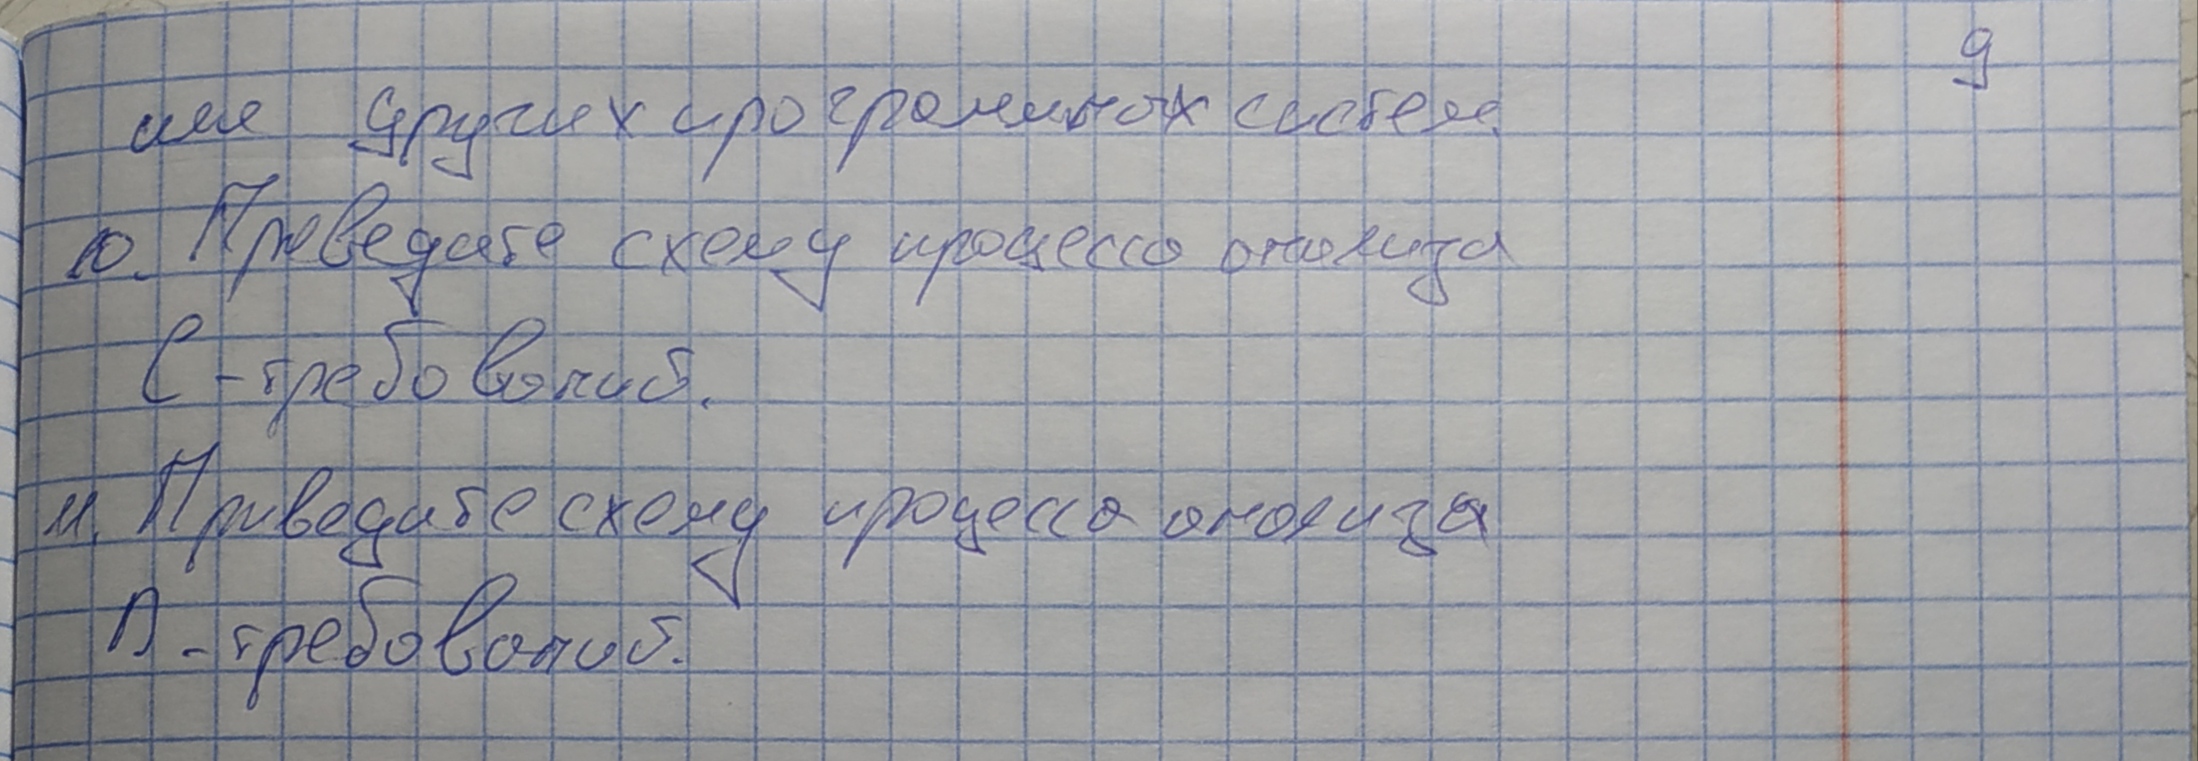 9
или других программных систем.
10. Приведите схему процесса анализа
С-требований.
11. Приведите схему процесса анализа
D-требований.